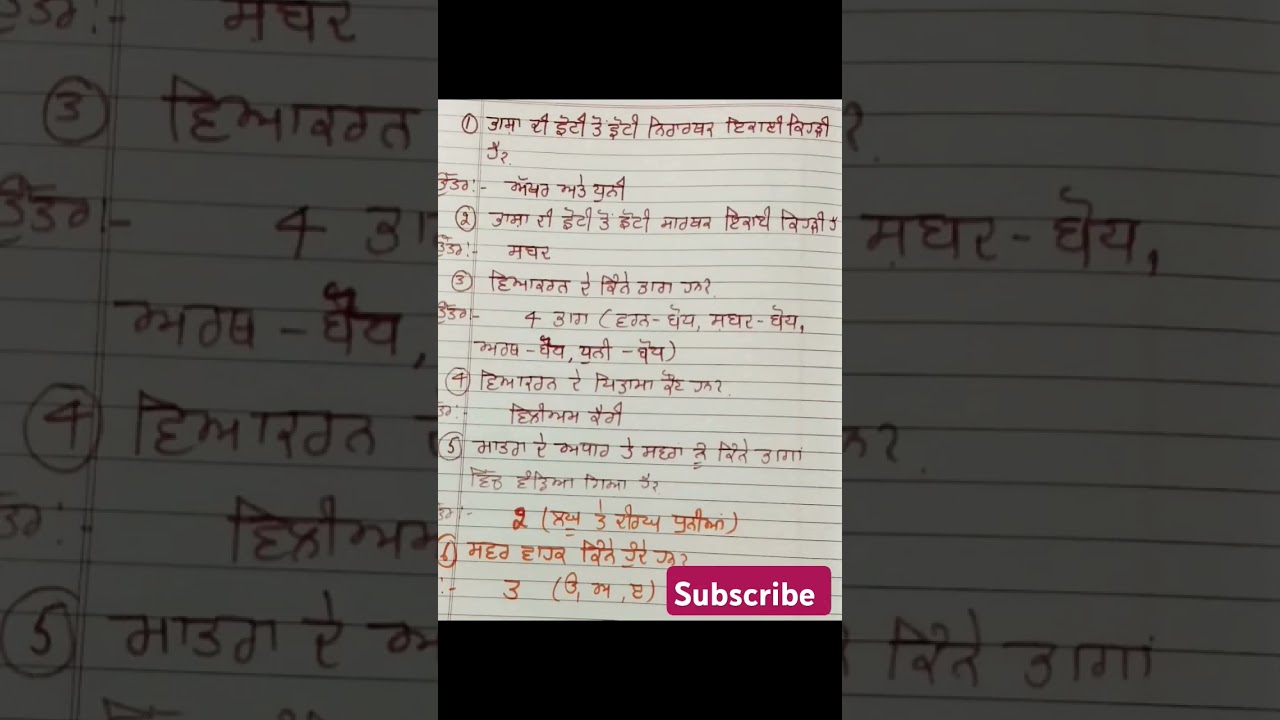 ① ਭਾਸ਼ਾ ਦੀ ਛੋਟੀ ਤੋਂ ਛੋਟੀ ਨਿਰਾਰਥਕ ਇਕਾਈ ਕਿਹੜੀ
ਹੈ?
ਉੱਤਰ:- ਅੱਖਰ ਅਤੇ ਧੁਨੀ
② ਭਾਸ਼ਾ ਦੀ ਛੋਟੀ ਤੋਂ ਛੋਟੀ ਸਾਰਥਕ ਇਕਾਈ ਕਿਹੜੀ ਹੈ
ਉੱਤਰ:- ਸ਼ਬਦ
③ ਵਿਆਕਰਨ ਦੇ ਕਿੰਨੇ ਭਾਗ ਹਨ?
ਉੱਤਰ:- 4 ਭਾਗ (ਵਰਨ-ਬੋਧ, ਸ਼ਬਦ-ਬੋਧ,
ਅਰਥ-ਬੋਧ, ਧੁਨੀ-ਬੋਧ)
④ ਵਿਆਕਰਨ ਦੇ ਪਿਤਾਮਾ ਕੌਣ ਹਨ?
ਤਰ:- ਵਿਲੀਅਮ ਕੈਰੀ
⑤ ਮਾਤਰਾ ਦੇ ਅਧਾਰ ਤੇ ਸਵਰਾਂ ਨੂੰ ਕਿੰਨੇ ਭਾਗਾਂ
ਵਿੱਚ ਵੰਡਿਆ ਗਿਆ ਹੈ?
ਤਰ:- 2 (ਲਘੂ ਤੇ ਦੀਰਘ ਧੁਨੀਆਂ)
6 ਸਵਰ ਵਾਹਕ ਕਿੰਨੇ ਹੁੰਦੇ ਹਨ?
:- 3 (ੳ, ਅ, ੲ)
Subscribe